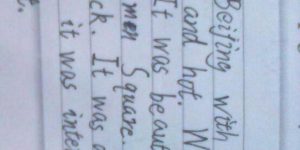 Beijing with
and hot. W
It was beaut
men Square.
ck. It was a
it was inte
t.